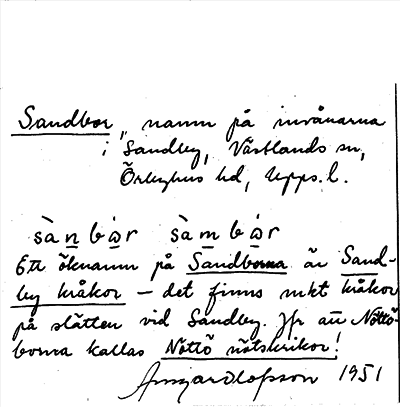 Sandbor, namn på invånarna
i Sandby, Västlands sn,
Örbyhus hd, Upps. l.
sàn bår sàm bår
Ett öknamn på Sandborna är Sand-
by kråkor – det finns mkt kråkor
på slätten vid Sandby. Jfr att Nöttö-
borna kallas Nöttö nötskrikor!
1951